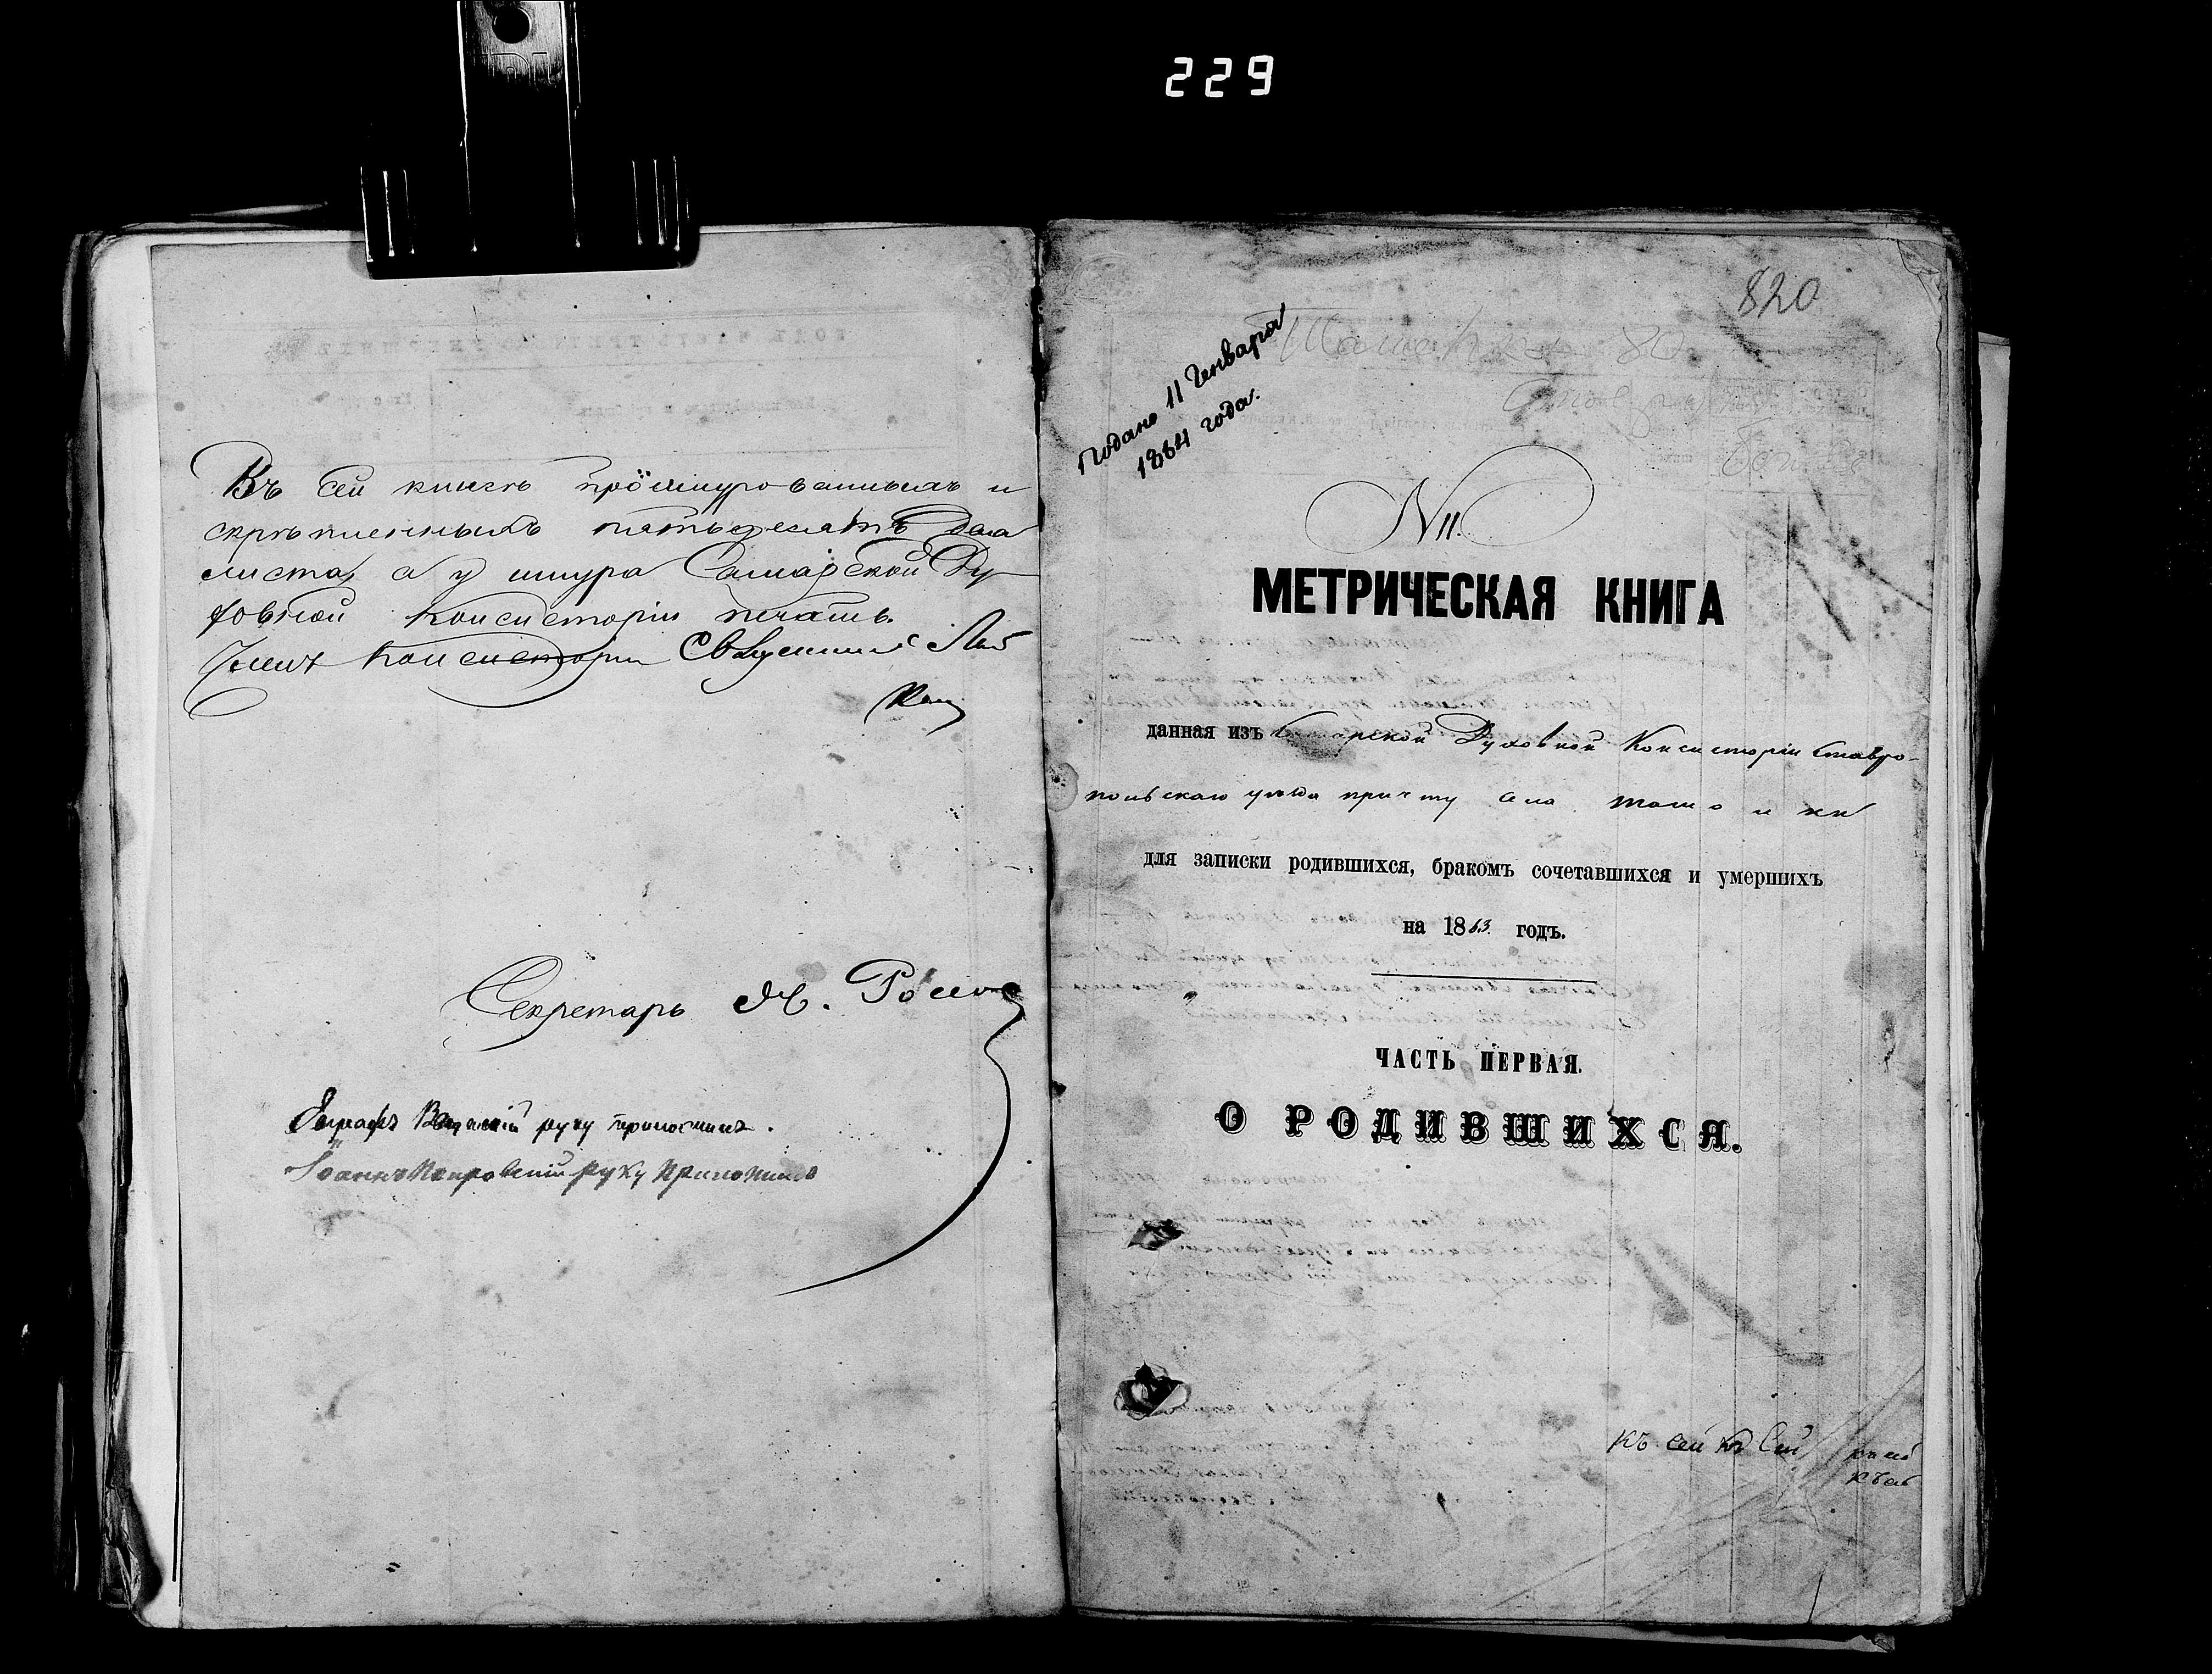 229
Въ сей книгѣ прошнурованныхъ и
скрѣпленныхъ пятьдесятъ два
листа, а у шнура Самарской Ду-
ховной Консисторіи печать.
Членъ Консисторіи Священникъ
Секретарь
руку приложилъ.
Іоаннъ Покровскій руку приложилъ
820
Подано 11 Генваря
1864 года.
80
N 11.
МЕТРИЧЕСКАЯ КНИГА
данная изъ Самарской Духовной Консисторіи Ставро-
польскаго уѣзда причту села
для записки родившихся, бракомъ сочетавшихся и умершихъ
на 1863 годъ.
ЧАСТЬ ПЕРВАЯ.
О РОДИВШИХСЯ.
Къ сей